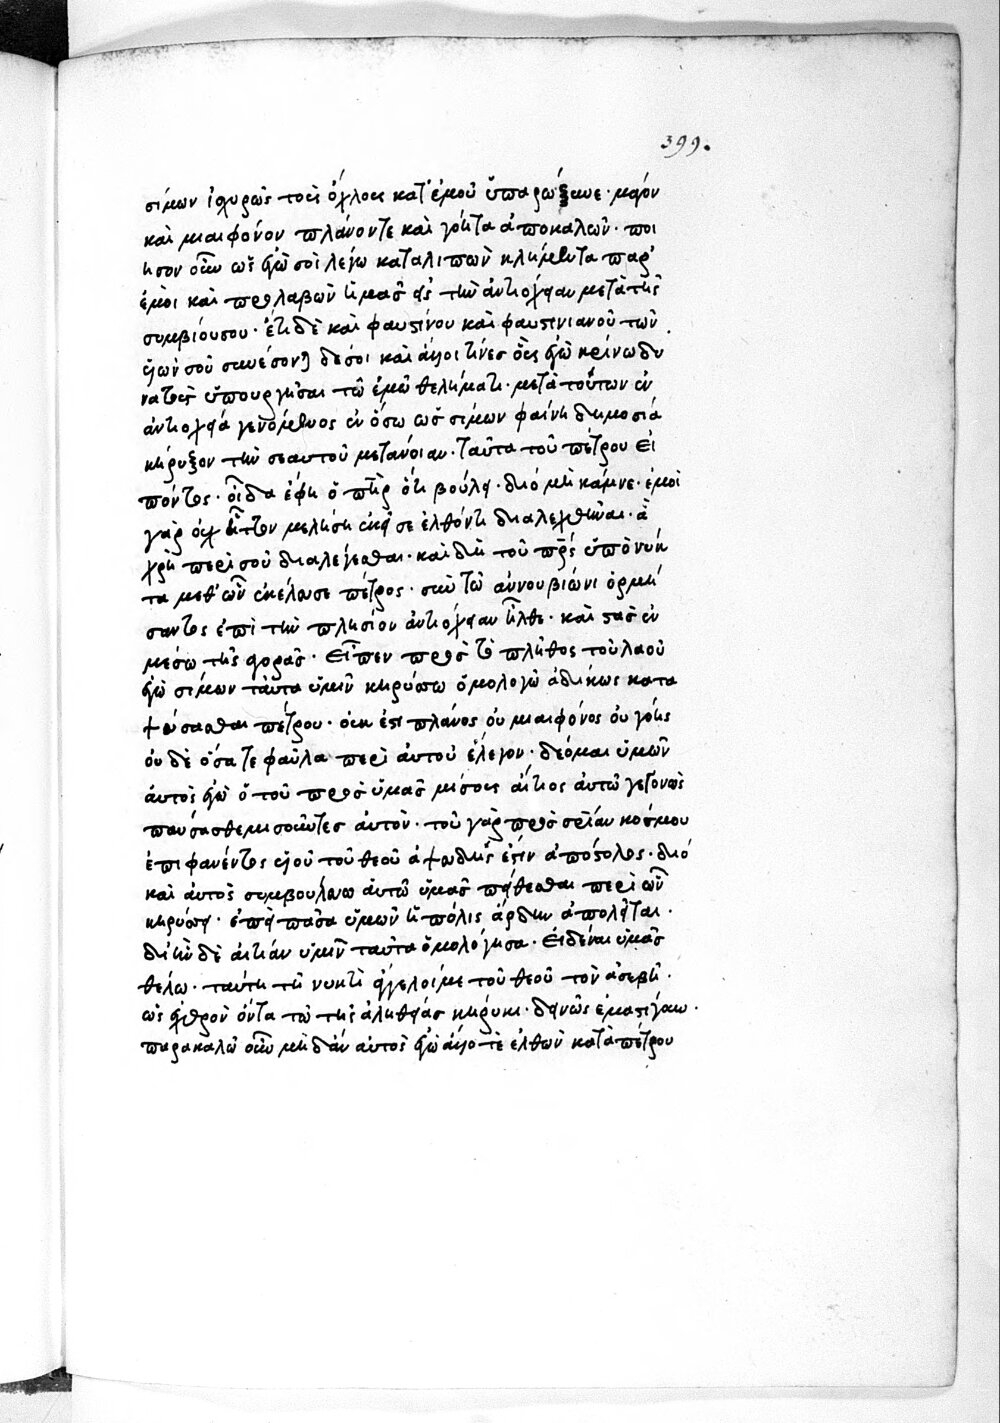 399.
σίμων ἰσχυρῶς τοὺς ὄχλους κατ' ἐμοῦ ὑπαρώξυνε· μάγον
καὶ μιαιφόνον πλάνον τε καὶ γόητα ἀποκαλῶν· ποι
ησον οὖν ὡς ἐγώ σοι λέγω καταλιπὼν κλήμεντα παρ'
ἐμοὶ καὶ προλαβὼν ἡμᾶς εἰς τὴν ἀντιόχειαν μετὰ τῆς
συμβίου σου· ἔτι δὲ καὶ φαυστίνου καὶ φαυστινιανοῦ τῶν
υἱῶν σοῦ συνέσονται δέ σοι καὶ ἄλλοι τινὲς οὓς ἐγὼ κρίνω δυ
νατοὺς ὑπουργῆσαι τῷ ἐμῷ θελήματι· μετὰ τούτων ἐν
ἀντιοχείᾳ γενόμενος ἐν ὅσω ὡς σίμων φαίνη δημοσίᾳ
κήρυξον τὴν σεαυτοῦ μετάνοιαν· ταῦτα τοῦ πέτρου εἰ
πόντος· οἶδα ἔφη ὁ πατὴρ ὅτι βούλει· διὸ μὴ κάμνε· ἐμοὶ
γὰρ οὐχ ἧττον μελήσει ἐκεῖσε ἐλθόντι διαλεχθῆναι· ἃ
χρὴ περὶ σοῦ διαλέγεσθαι· καὶ δὴ τοῦ πρς ὑπὸ νύκ
τα μεθ' ὧν ἐκέλευσε πέτρος· σὺν τῷ ἀννουβιώνι ὁρμή
σαντος ἐπὶ τὴν πλησίον ἀντιόχειαν ἦλθε· καὶ στὰς ἐν
μέσω τῆς ἀγορᾶς· εἶπεν πρὸς τὸ πλῆθος τοῦ λαοῦ
ἐγὼ σίμων ταῦτα ὑμῖν κηρύσσω ὁμολογῶ ἀδίκως κατα
ψεύσασθαι πέτρου· οὐκ ἔστι πλάνος οὐ μιαιφόνος οὐ γόης
οὐδὲ ὅσα τε φαῦλα περὶ αὐτοῦ ἔλεγον· δέομαι ὑμῶν
αὐτὸς ἐγὼ ὁ τοῦ πρὸς ὑμᾶς μίσους αἴτιος αὐτῷ γεγονὼς
παύσασθε μισοῦντες αὐτόν· τοῦ γὰρ πρὸς σρίαν κόσμου
ἐπιφανέντος υἱοῦ τοῦ θεοῦ ἀψευδής ἐστιν ἀπόστολος· διὸ
καὶ αὐτὸς συμβουλεύω αὐτῷ ὑμᾶς πείθεσθαι περὶ ὧν
κηρύσσει· ἐπεὶ πᾶσα ὑμῶν ἡ πόλις ἄρδην ἀπολεῖται·
δι' ἣν δὲ αἰτίαν ὑμῖν ταῦτα ὁμολόγησα· εἰδέναι ὑμᾶς
θέλω· ταύτῃ τῇ νυκτὶ ἄγγελοί με τοῦ θεοῦ τὸν ἀσεβῆ·
ὡς ἐχθρὸν ὄντα τῷ τῆς ἀληθείας κήρυκι· δεινῶς ἐμαστίγουν·
παρακαλῶ οὖν μηδ' ἂν αὐτὸς ἐγὼ ἄλλοτε ἐλθὼν κατὰ πέτρου